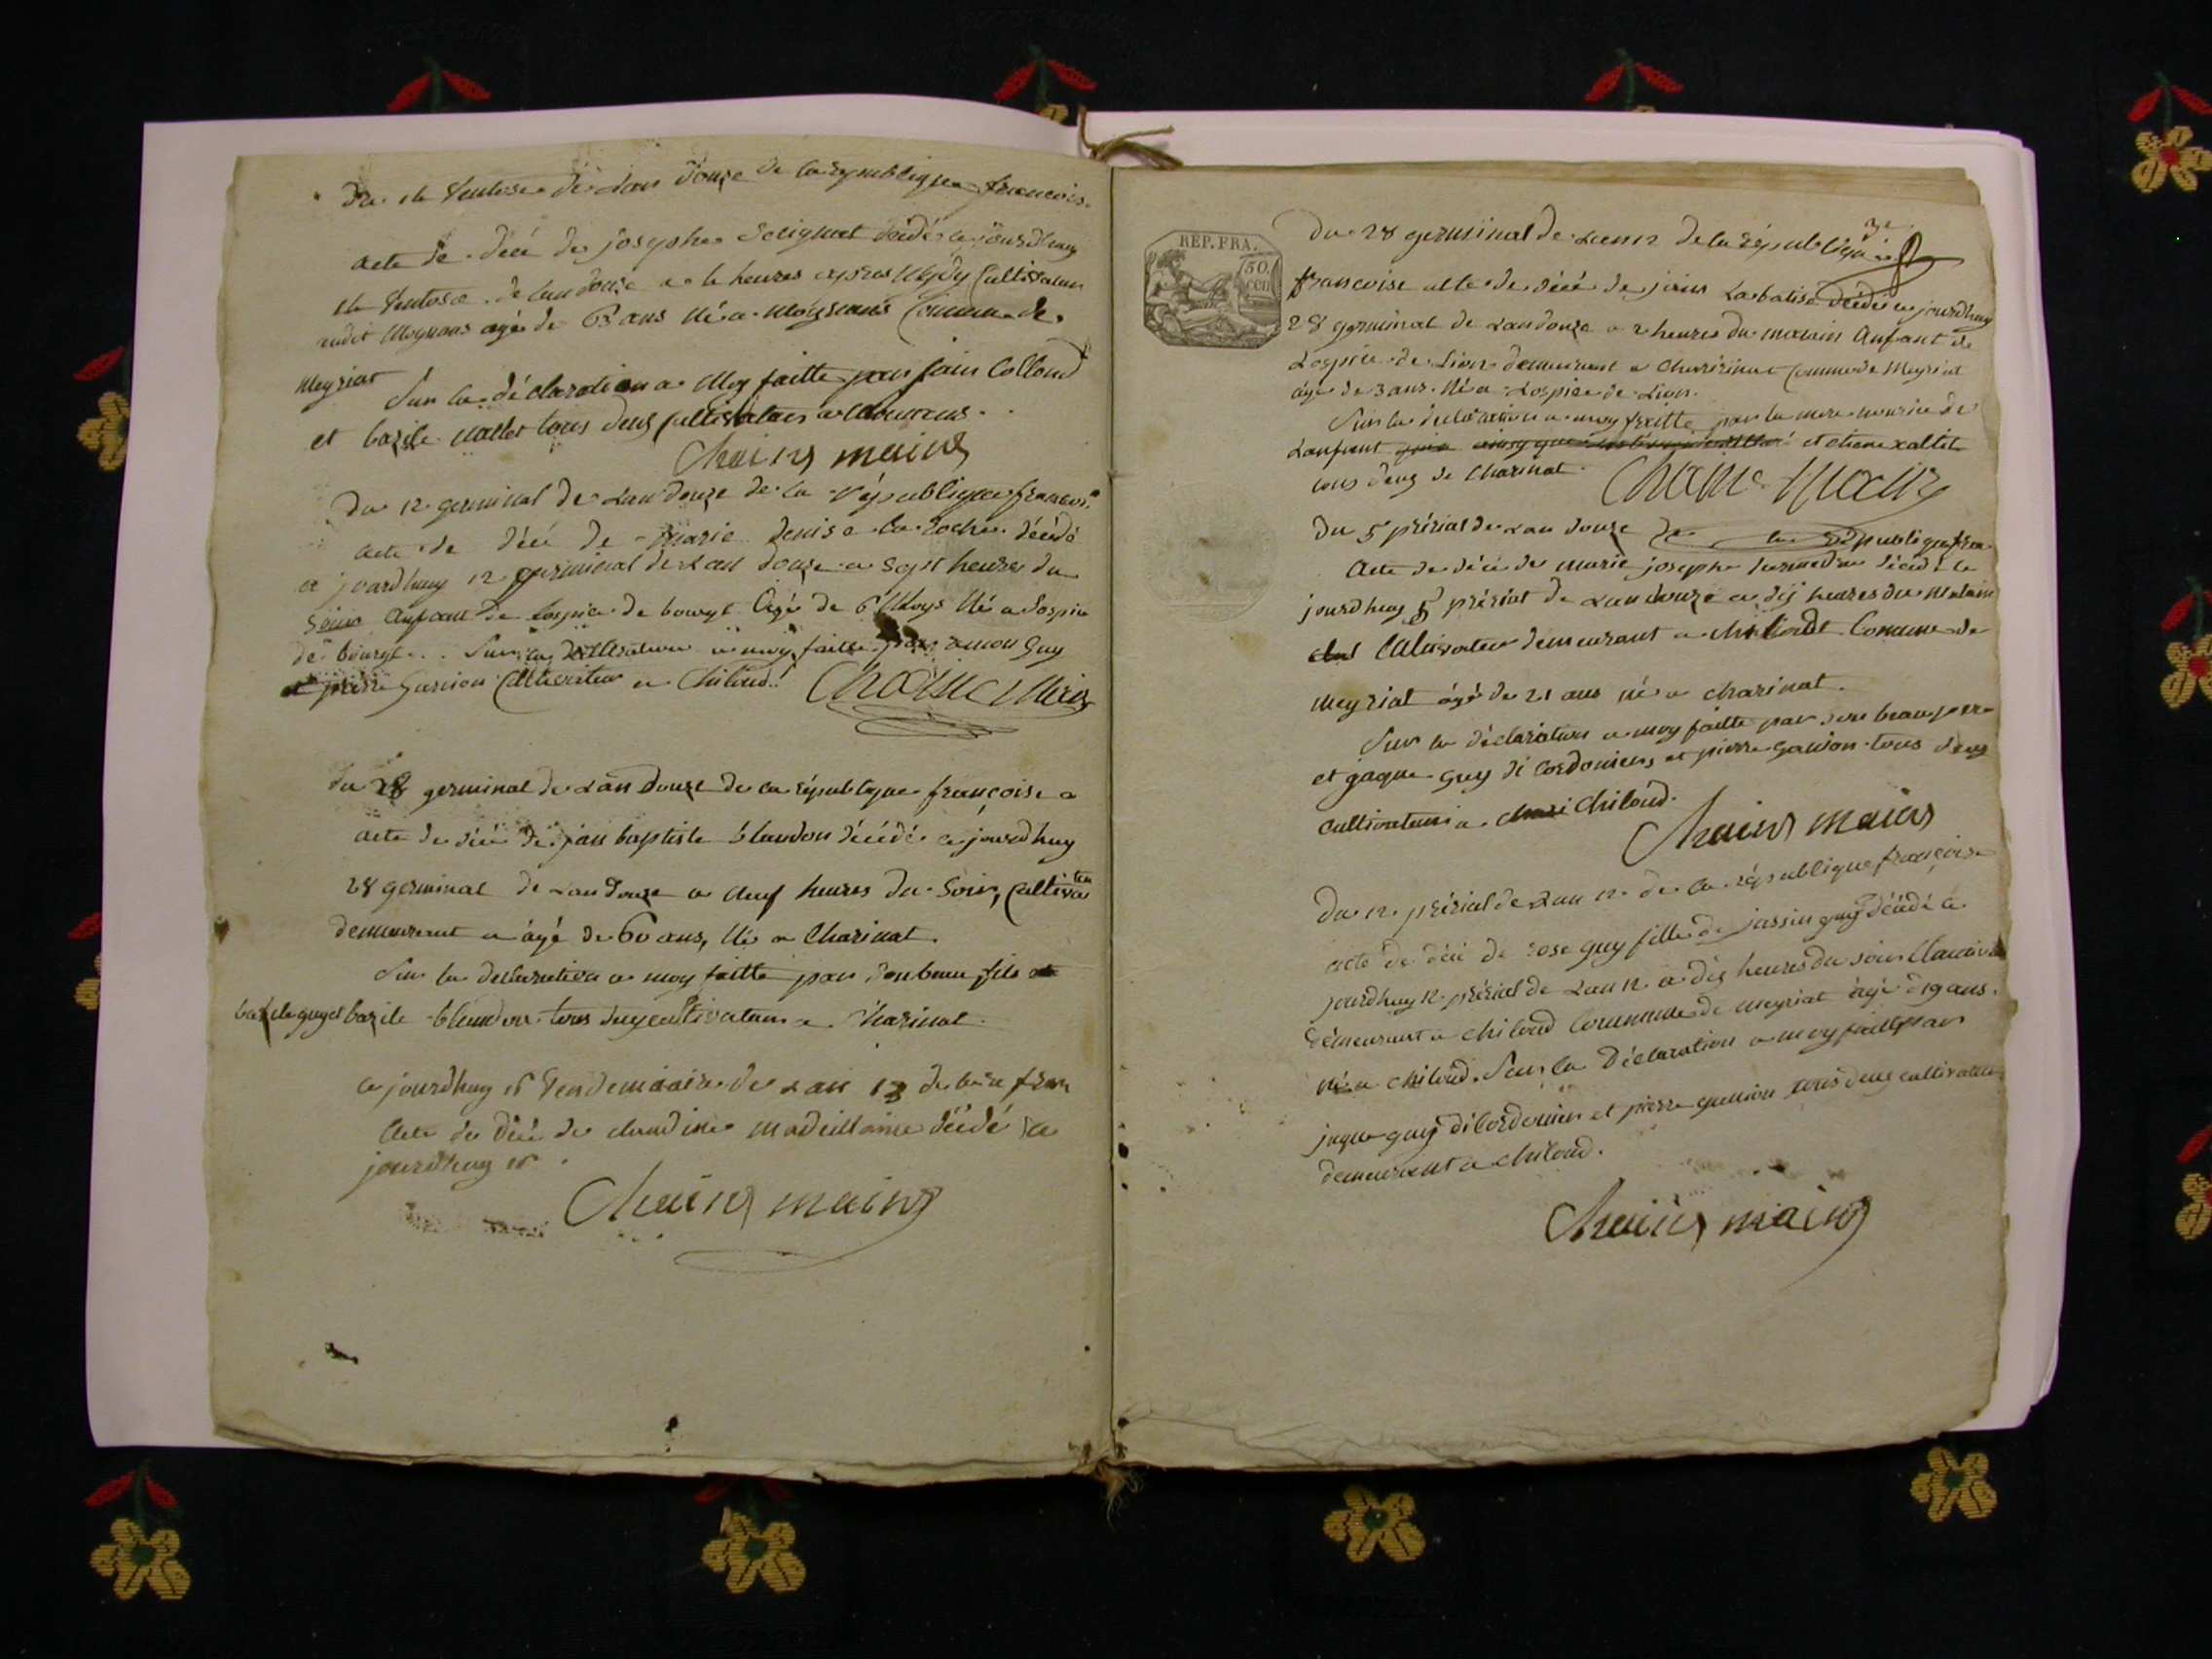 Du 16 Ventose de Lan douze de la republique francois.
acte de décé de josephe décidé ce jourdhuy
16 Ventose de Lan douze a 6 heures apres Mydy Cultivateur
audit Moynans agé de 63 ans Né a Moynans Commune de
Meyriat
Sur la déclaration a Moy faitte par jain Colloud
et bazile tous deus cultivateur a
Chaine maing
Du 12 germinal de Lan douze de la république francois.
acte de décé de Marie denise la roche décédé
ce jourdhuy 12 germinal de Lan douze a Sept heures du
Soiur Anfant de Lospice de bourgt Agé de 6 Moys Né a Lospice
de bourgt. Sur la a moy faitte par Guy
pierre Gunion Cultivateur a Chiloud.
Chaine Main
Du 28 germinal de Lan Douze de la républyque françoise a
acte de décé de jan baptiste blandon décédé ce jourdhuy
28 germinal de Lan Douze a Neuf heures du Soir, Cultivateu
demeurent a àgé de 60 ans, Né a Charinat.
Sur la declaration a moy faitte par Son beau fils
bazile guy et bazile blandon tous deux cultivateurs a Charinat.
ce jourdhuy 16 Vendemiaire de Lan 13 de lere fran
Acte de décé de claudine décédé ce
jourdhuy 16.
Chaine maing
3e
REP. FRA.
50.
CEN
Du 28 germinal de Lan 12 de la république
francoise acte de décé de jain Labatise décédé ce jourdhuy
28 germinal de Lan douze a 2 heures du matain Anfant de
Lospice de Lion demeurant a Charinat Commune de Meyriat
âgé de 3 ans. Né a Lospice de Lion.
Sur la declaration a moy faitte par la mere nourice de
Lanfant et etiene
tous deus de Charinat.
Chaine Maing
Du 5 prérial de Lan douze De la republique fran
Acte de décé de marie josephe décédé ce
jourdhuy 5 prérial de Lan douze a dis heures du Matain
Cultivateur demeurant a chiloud Comune de
Meyriat âgé de 21 ans né a charinat.
Sur la déclaration a moy faitte par son beau pere
et jaque Guy di Cordoniers et pierre Gunion tous deus
cultivateurs a Chiloud.
Chaine maing
Du 12 prérial de Lan 12 de la république françoise
acte de décé de rose guy fille de jassin guy décédé ce
jourdhuy 12 prérial de Lan 12 a dis heures du soir
demeurant a chiloud Commune de meyriat âgé d 19 ans.
né a chiloud. Sur la Déclaration a moy faitte par
jaque guy di Cordonier et pierre gunion tous deus cultivateur
demeurent a chiloud.
Chaine maing